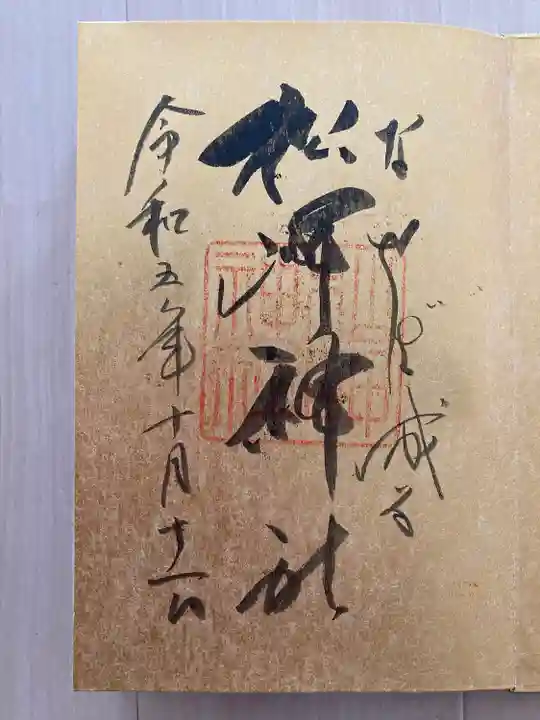 なせば成る
松岬神社
令和五年十月十一日